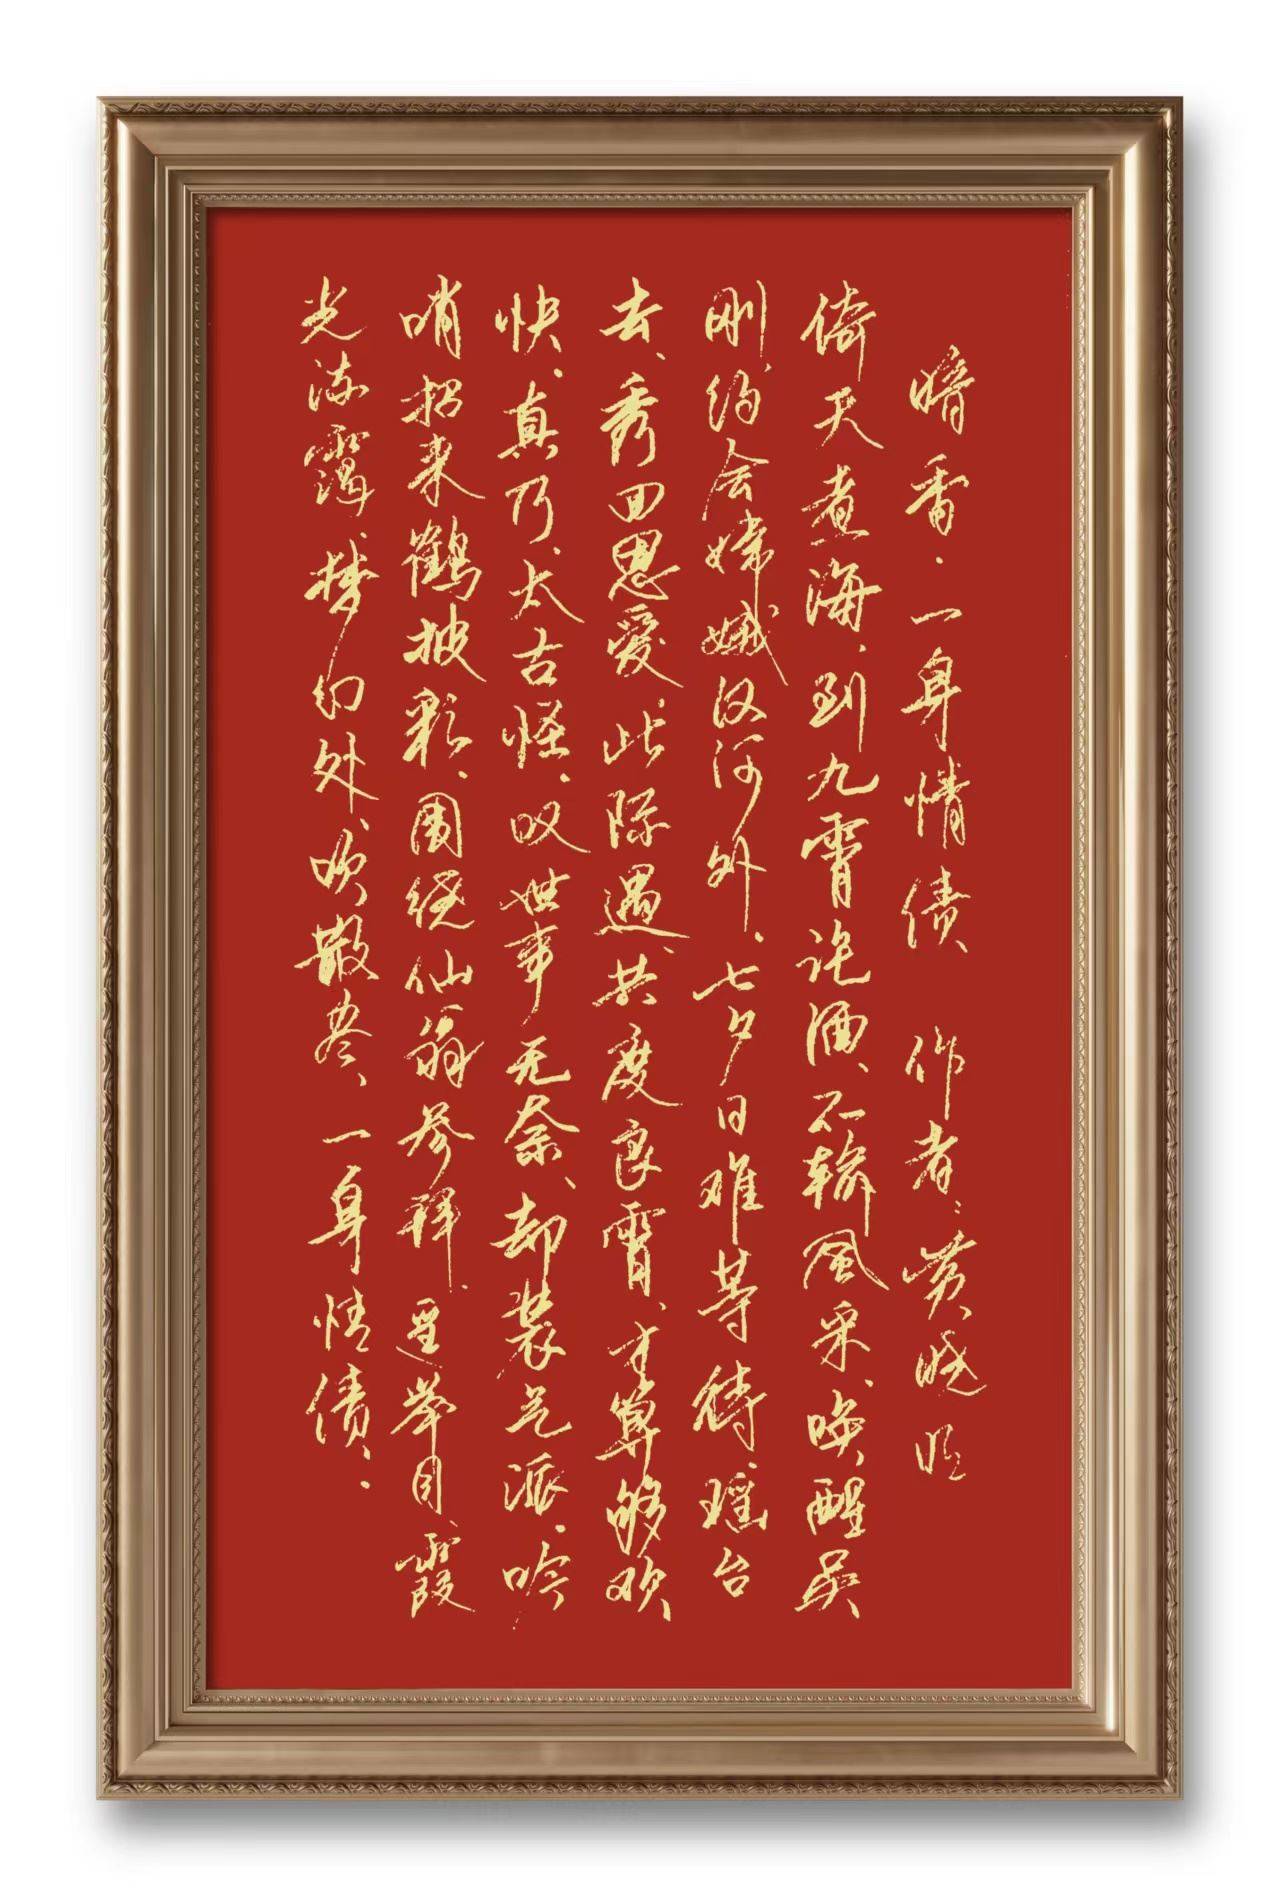 暗香·一身情债 作者:黄晓明
倚天煮海、到九霄诧酒、不输风采、唤醒吴
刚、约会嫦娥汉河外、七夕日难等待、瑶台
去、秀回恩爱、此际遇、共度良宵、才算够欢
快、真乃、太古怪、叹世事无奈、却装气派、吟
哨招来鹤披彩、围绕仙翁参拜、举目、霞
光流霭、梦幻外、吹散卷、一身情债: